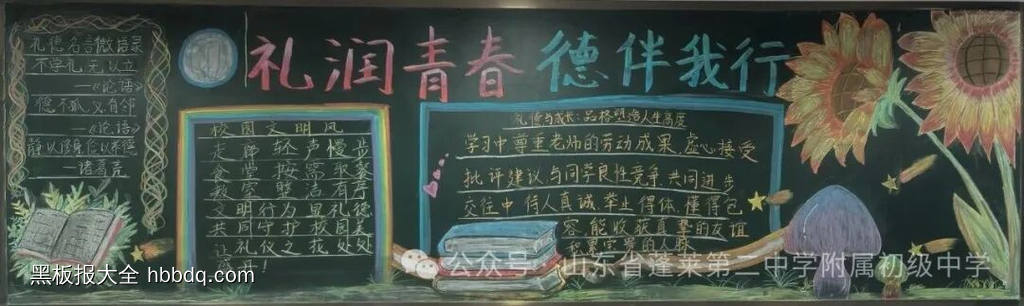 礼润青春 德伴我行
礼德名言微语录
不学礼 无以立
—《论语》
德不孤 必有邻
—《论语》
静以修身 俭以养德
—诸葛亮
校园文明风
走廊轻声慢步
食堂按需取餐
教室整洁有序
文明行为显礼德
共同守护校园美
让礼仪之花处处
礼德与成长:品格锻造人生高度
学习中尊重老师的劳动成果,虚心接受
批评建议与同学良性竞争,共同进步
交往中,待人真诚,举止得体,懂得包
容,能收获真挚的友谊
积累宝贵的人脉
黑板报大全 hbbdq.com
公众号·山东省蓬莱第二中学附属初级中学